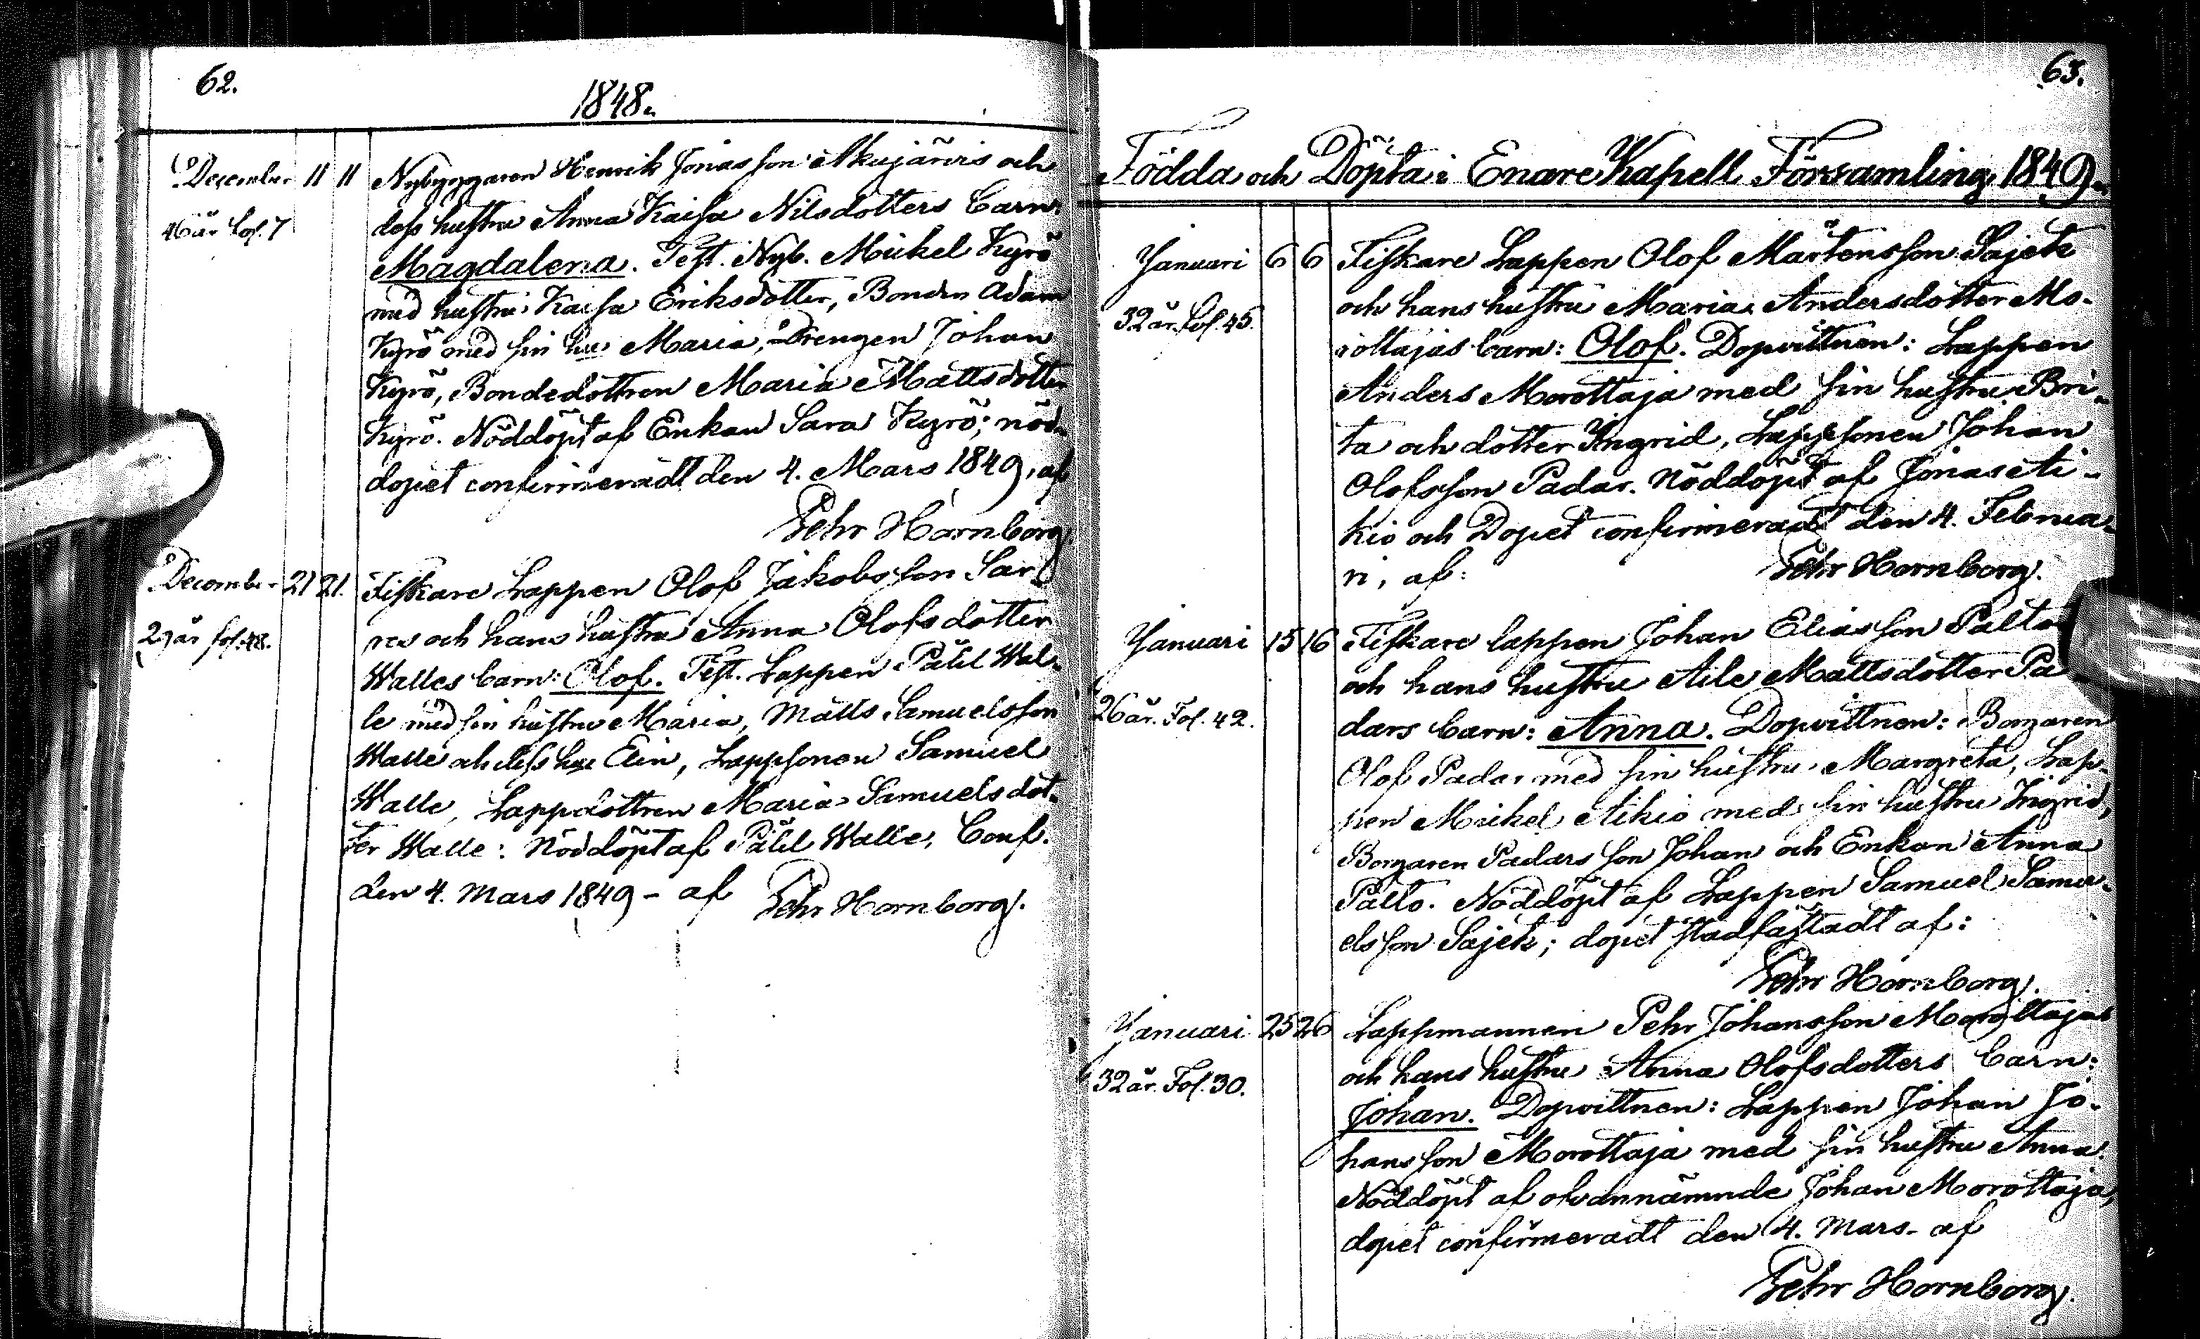 62.
1848.
December 11 11 Nybyggaren Henrik Jonasson Akujärvis och
46 år fol. 7 dess hustru Anna Kaisa Nilsdotters barn:
Magdalena. Test. Nyb. Mickel Kyrö
med hustru Kaisa Eriksdotter, Bonden Adam
Kyrö med sin hu: Maria, Drengen Johan
Kyrö, Bondedottren Maria Mattsdotter
Kyrö. Nöddöpt af Enkan Sara Kyrö; nöd-
dopet confirmeradt den 4. Mars 1849, af
Pehr Hornborg.
December 21 21. Fiskare Lappen Olof Jakobsson Sar-
29 år fol. 48. res och hans hustru Anna Olofsdotter
Walles barn: Olof. Test. Lappen Påhl Wal-
le med sin hustru Maria, Matts Samuelsson
Walle och dess hu Elin, Lappsonen Samuel
Walle, Lappdottren Maria Samuelsdot-
ter Walle: Nöddöpt af Påhl Walle, Conf.
den 4. Mars 1849 - af Pehr Hornborg.
63.
Födda och Döpta i Enare Kapell Församling 1849.
Januari 6 6 Fiskare Lappen Olof Mårtensson Sajek
32 år. fol. 45. och hans hustru Maria Andersdotter Mo-
rottajas barn: Olof. Dopvittnen: Lappen
Anders Morottaja med sin hustru Bri-
ta och dotter Ingrid, Lappsonen Johan
Olofsson Padar. Nöddöpt af Jonas Ai-
kio och Dopet confirmeradt den 4. Februa-
ri, af: Pehr Hornborg.
Januari 15 16 Fiskare lappen Johan Eliasson Palto
26 år. Fol. 42. och hans hustru Aile Mattsdotter Pa-
dars barn: Anna. Dopvittnen: Borgaren
Olof Padar med sin hustru Margreta, Lap-
pen Mickel Aikio med sin hustru Ingrid,
Borgaren Padars son Johan och Enkan Anna
Palto. Nöddöpt af Lappen Samuel Samu-
elsson Sajek; dopet stadfästadt af:
Pehr Hornborg.
Januari 25 26 Lappmannen Pehr Johansson Morottajas
32 år. Fol. 30. och hans hustru Anna Olofsdotters barn:
Johan. Dopvittnen: Lappen Johan Jo-
hansson Morottaja med sin hustru Anna.
Nöddöpt af ofvannämnde Johan Morottaja,
dopet confirmeradt den 4. Mars - af
Pehr Hornborg.